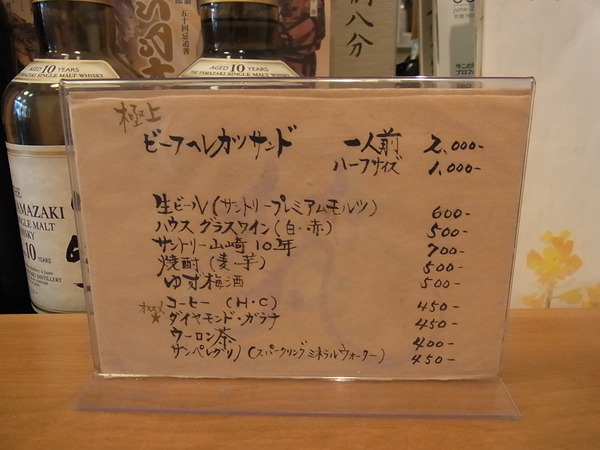 五十回忌追善
八分
AGED 10 YEARS
THE YAMAZAKI SINGLE MALT WHISKY
AGED 10 YEARS
THE YAMAZAKI SINGLE MALT WHISKY
THE
YAMAZAKI
SINGLE MALT
WHISKY
10 YEARS
極上
ビーフヘレカツサンド 一人前 2,000-
ハーフサイズ 1,000-
生ビール(サントリープレミアムモルツ) 600-
ハウスグラスワイン(白・赤) 500-
サントリー山崎10年 700-
焼酎(麦・芋) 500-
ゆず梅酒 500-
コーヒー (H・C) 450-
★ ダイヤモンド・ガラナ 450-
ウーロン茶 400-
サンペレグリノ(スパークリングミネラルウォーター) 450-